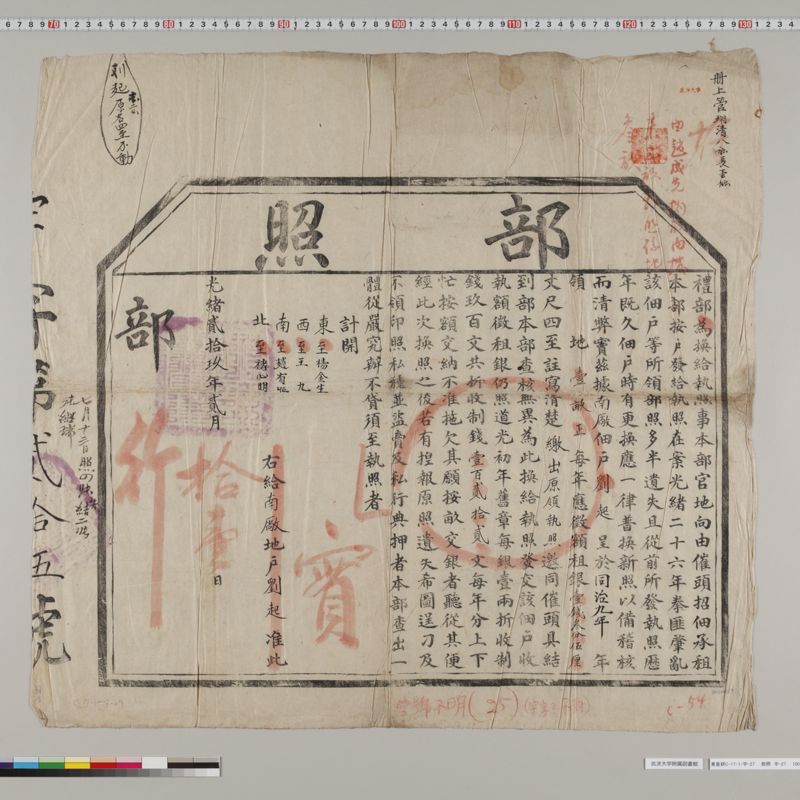 部照
禮部為換給執照事本部官地向由催頭招佃承租
本部按戶發給執照在案光緒二十六年拳匪肇亂
該佃戶等所領部照多半遺失且從前所發執照歷
年既久佃戶時有更換應一律普換新照以備稽核
而清弊竇茲據南廠佃戶劉起呈於同治九年 年
領 地壹畝正每年應徵額租銀壹錢叁分伍厘
丈尺四至註寫清楚繳出原領執照邀同催頭具結
到部本部查核無異為此換給執照發交該佃戶收
執額徵租銀仍照道光初年舊章每銀壹兩折收制
錢玖百文共折收制錢壹百貳拾貳文每年分上下
忙按額交納不准拖欠其願按畝交銀者聽從其便
經此次換照之後若有捏報原照遺失希圖逞刁及
不領印照私種並盜賣及私行典押者本部查出一
體從嚴究辦不貸須至執照者
計開
東至楊金生
西至王九
南至趙有
北至
右給南廠地戶劉起准此
光緒貳拾玖年貳月拾壹日
部
行
實
字第貳拾伍號
七月十三日照
劉起原名置不動
冊上管
由趙成先
字輝不明(25)
C-54
筑波大学附属図書館